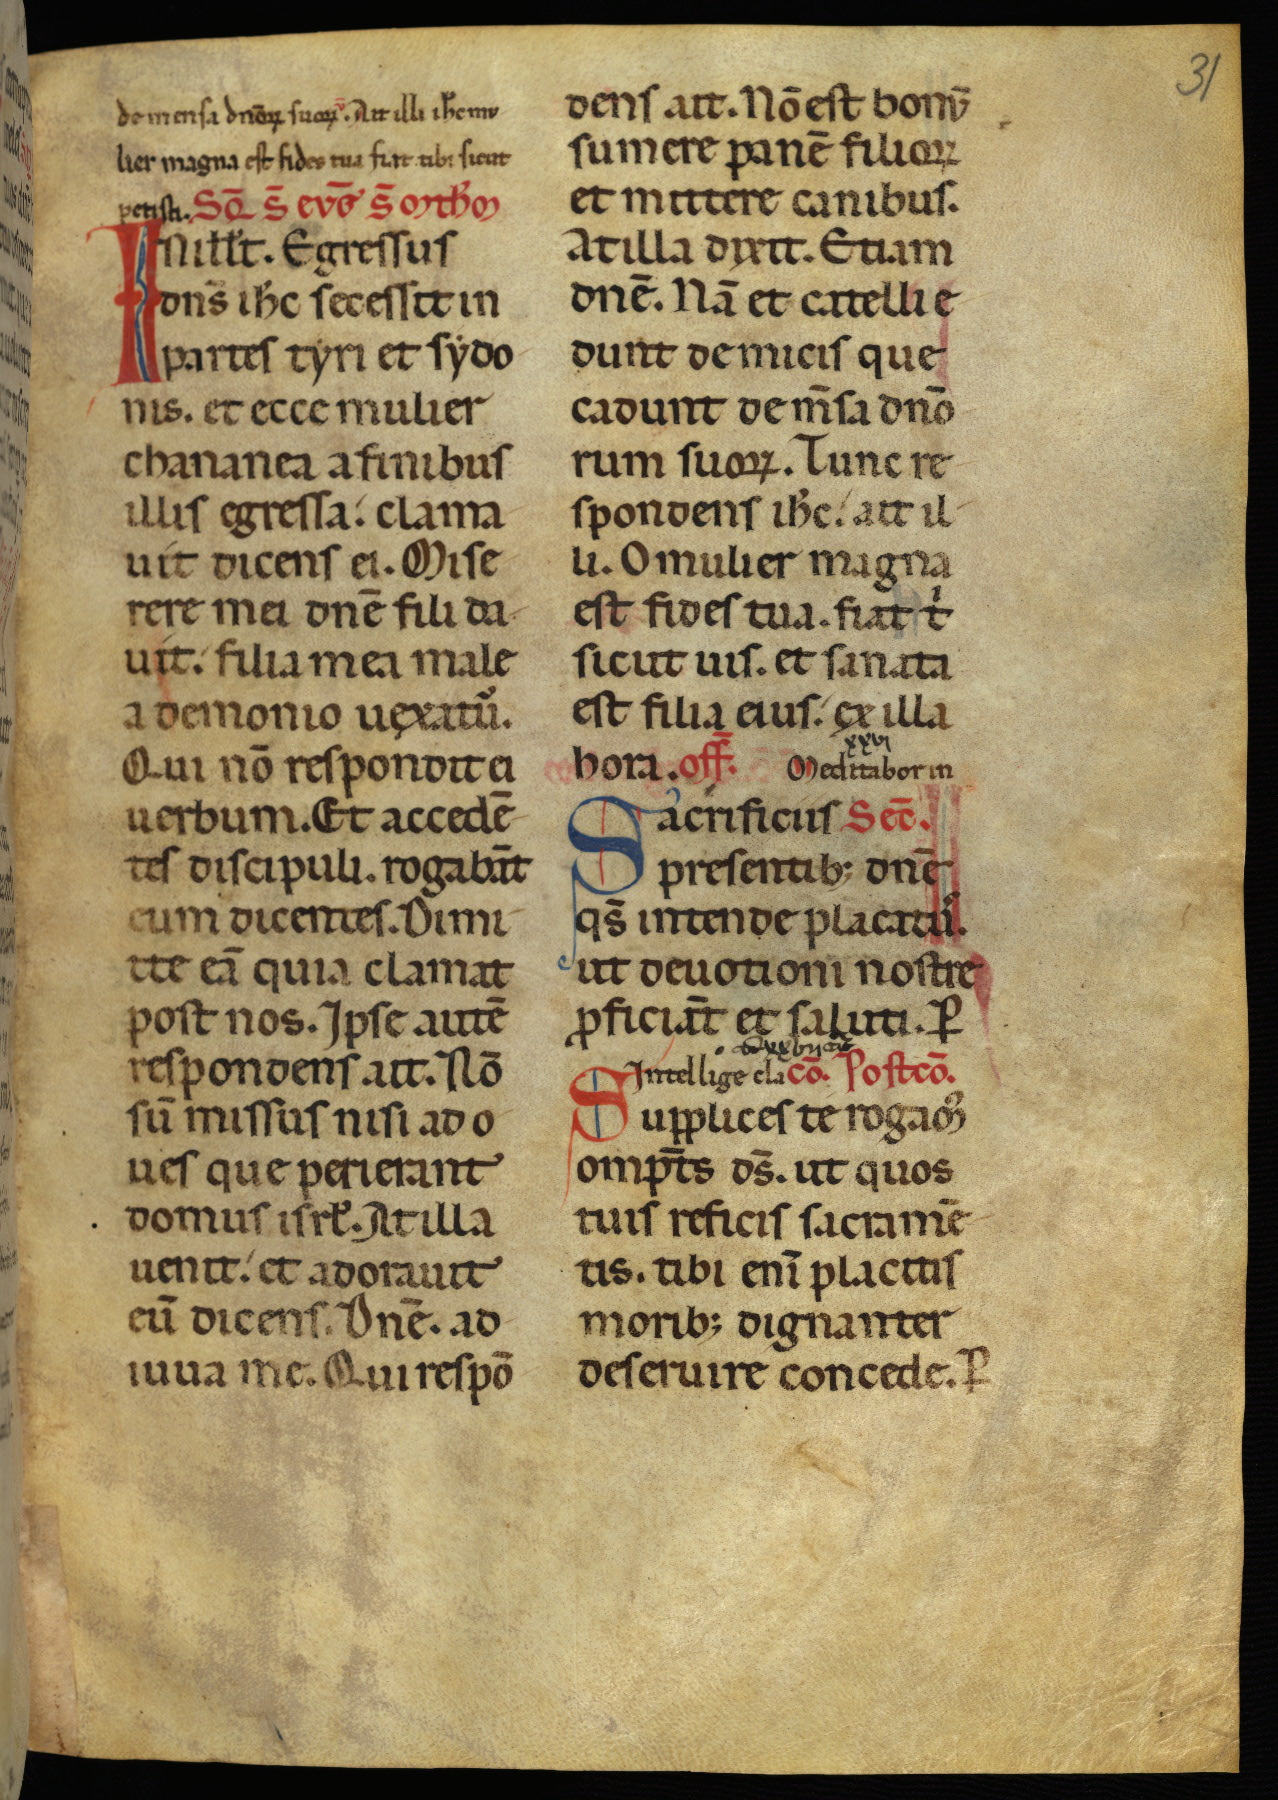 31
de mensa dnõꝝ suoꝝ. Ait illi ih̄c mu
lier magna est fides tua fiat tibi sicut
petisti. Sq̄ s̄ evḡ s̄ mth̄m
In ill̄ t̄. Egressus
dn̄s ih̄c secessit in
partes tyri et sydo
nis. et ecce mulier
chananea a finibus
illis egressa. clama
uit dicens ei. Mise
rere mei dn̄e fili da
uit. filia mea male
a demonio uexatur̃.
Qui nõ respondit ei
uerbum. Et accedē
tes discipuli. rogabāt
eum dicentes. Dimi
tte eā quia clamat
post nos. Ipse autē
respondens ait. Nõ
sũ missus nisi ad o
ues que perierant
domus isrł. At illa
uenit. et adorauit
eũ dicens. Dn̄e. ad
iuua me. Qui respõ
dens ait. Nõ est bonũ
sumere panē filioꝝ
et mittere canibus.
At illa dixit. Etiam
dn̄e. Nā et catelli e
dunt de micis que
cadunt de m̄sa dn̄o
rum suoꝝ. Tunc re
spondens ih̄c. ait il
li. O mulier magna
est fides tua. fiat t͛
sicut uis. et sanata
est filia eius. ex illa
xxvi
hora. off̄. Meditabor in
Sacrificiis Sec̄.
presentib; dn̄e
qs̄ intende placatus̃.
ut deuotioni nostre
ꝓficiāt et saluti. P̱
Intellige cla cõ. Postcõ.
Supplices te rogam̃
omp̄ts ds̄. ut quos
tuis reficis sacramē
tis. tibi enī placitis
morib; dignanter
deseruire concede. P̱